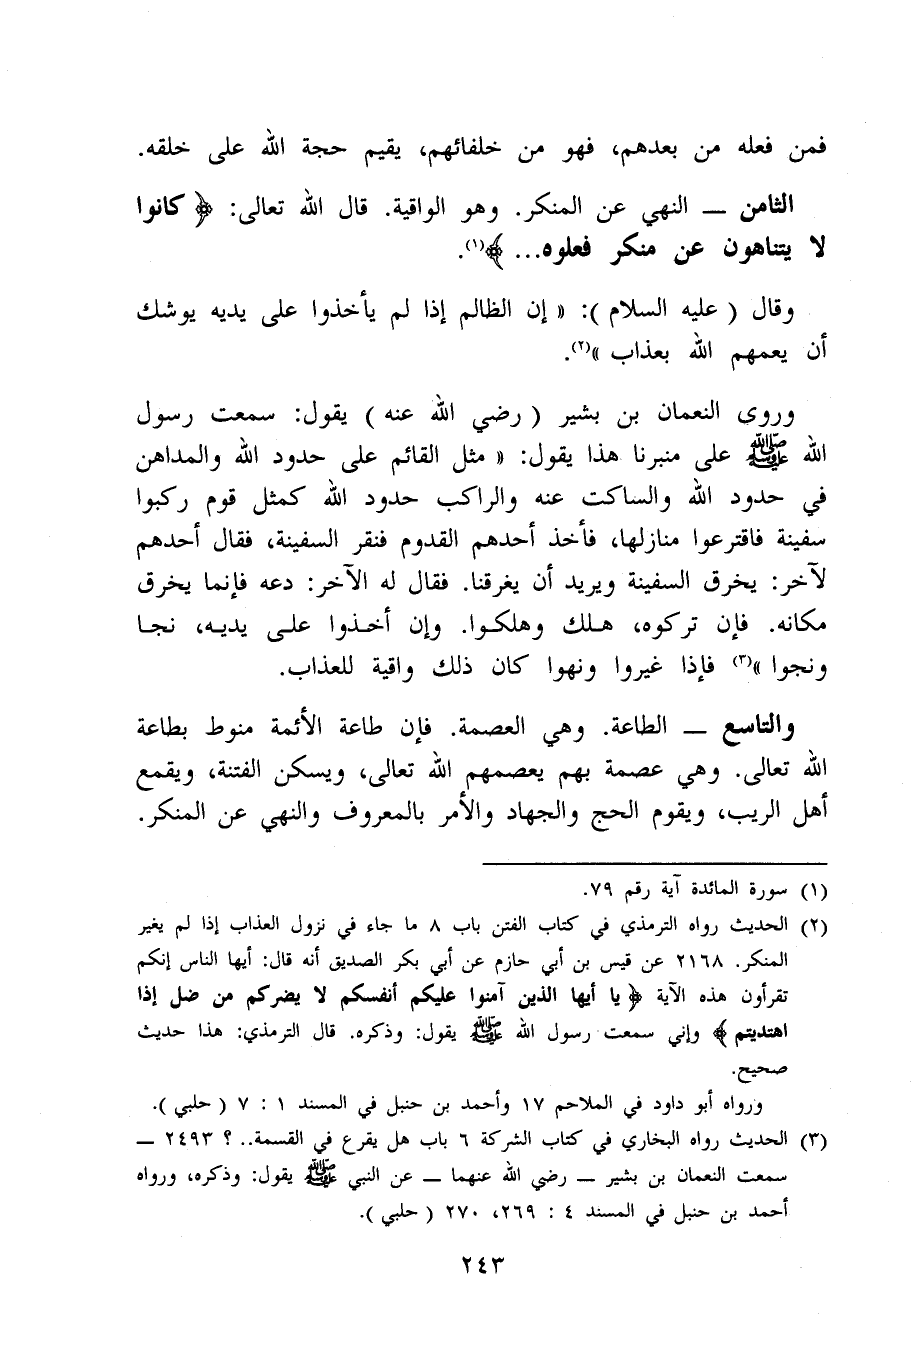 فمن فعله من بعدهم، فهو من خلفائهم، يقيم حجة الله على خلقه.
الثامن ــ النهي عن المنكر. وهو الواقية. قال الله تعالى: ﴿ كانوا
لا يتناهون عن منكر فعلوه... ﴾(١).
وقال ( عليه السلام ): « إن الظالم إذا لم يأخذوا على يديه يوشك
أن يعمهم الله بعذاب »(٢).
وروى النعمان بن بشير ( رضي الله عنه ) يقول: سمعت رسول
الله ﷺ على منبرنا هذا يقول: « مثل القائم على حدود الله والمداهن
في حدود الله والساكت عنه والراكب حدود الله كمثل قوم ركبوا
سفينة فاقترعوا منازلها، فأخذ أحدهم القدوم فنقر السفينة، فقال أحدهم
لآخر: يخرق السفينة ويريد أن يغرقنا. فقال له الآخر: دعه فإنما يخرق
مكانه. فإن تركوه، هلك وهلكوا. وإن أخذوا على يديه، نجا
ونجوا »(٣) فإذا غيروا ونهوا كان ذلك واقية للعذاب.
والتاسع ــ الطاعة. وهي العصمة. فإن طاعة الأئمة منوط بطاعة
الله تعالى. وهي عصمة بهم يعصمهم الله تعالى، ويسكن الفتنة، ويقمع
أهل الريب، ويقوم الحج والجهاد والأمر بالمعروف والنهي عن المنكر.
(١) سورة المائدة آية رقم ٧٩.
(٢) الحديث رواه الترمذي في كتاب الفتن باب ٨ ما جاء في نزول العذاب إذا لم يغير
المنكر. ٢١٦٨ عن قيس بن أبي حازم عن أبي بكر الصديق أنه قال: أيها الناس إنكم
تقرأون هذه الآية ﴿ يا أيها الذين آمنوا عليكم أنفسكم لا يضركم من ضل إذا
اهتديتم ﴾ وإني سمعت رسول الله ﷺ يقول: وذكره. قال الترمذي: هذا حديث
صحيح.
ورواه أبو داود في الملاحم ١٧ وأحمد بن حنبل في المسند ١ : ٧ ( حلبي ).
(٣) الحديث رواه البخاري في كتاب الشركة ٦ باب هل يقرع في القسمة.. ؟ ٢٤٩٣ ــ
سمعت النعمان بن بشير ــ رضي الله عنهما ــ عن النبي ﷺ يقول: وذكره، ورواه
أحمد بن حنبل في المسند ٤ : ٢٦٩، ٢٧٠ ( حلبي ).
٢٤٣